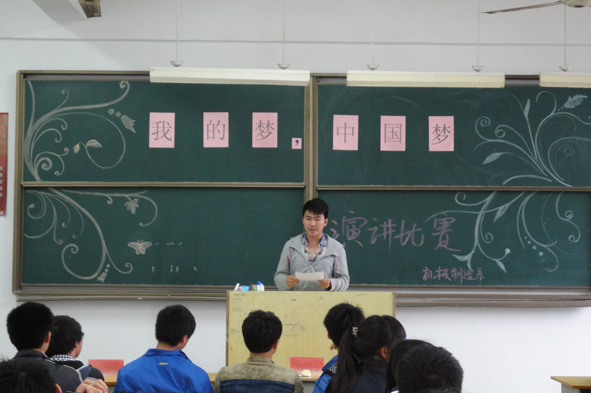 我的梦,中国梦
演讲比赛
机械制造系